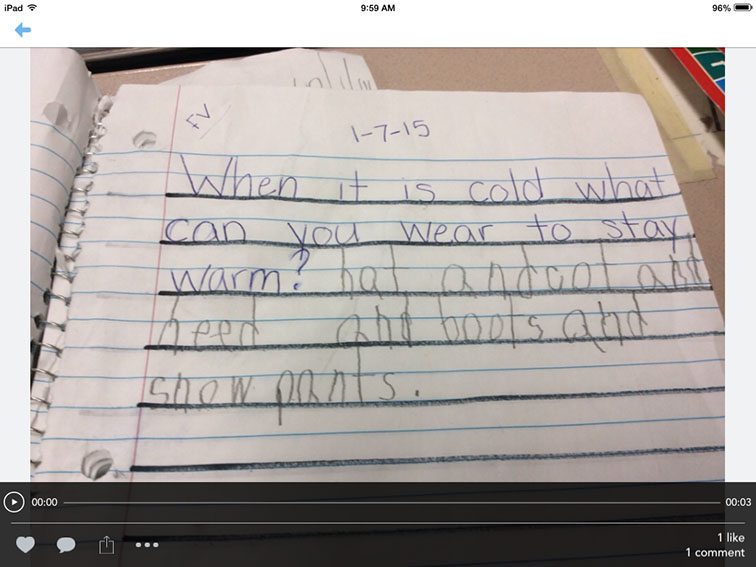 iPad
9:59 AM
96%
FV
1-7-15
When it is cold what
can you wear to stay
warm? hat and cot and
heed and boots and
snow pants.
00:00
00:03
1 like
1 comment